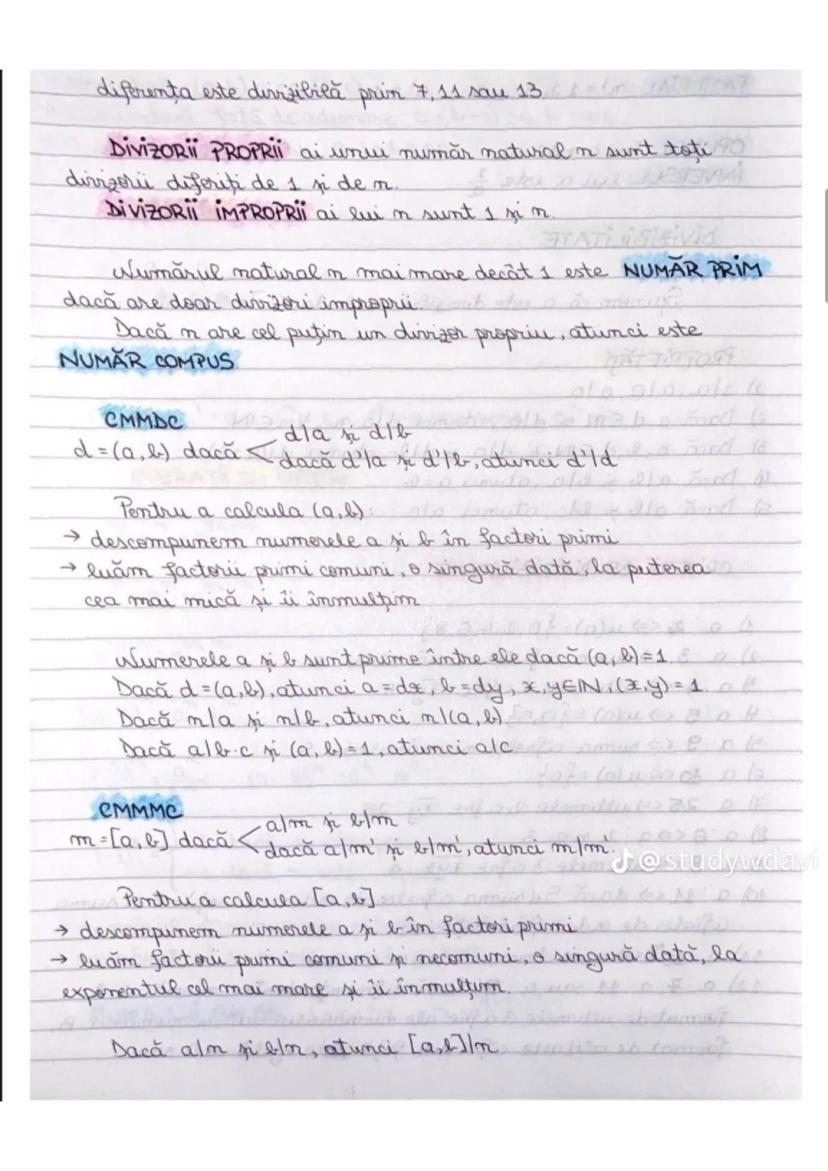 diferența este divizibilă prin 7, 11 sau 13.
DIVIZORII PROPRII ai unui număr natural n sunt toți
divizorii diferiți de 1 și de n.
DIVIZORII IMPROPRII ai lui n sunt 1 și n.
Numărul natural n mai mare decât 1 este NUMĂR PRIM
dacă are doar divizori improprii.
Dacă n are cel puțin un divizor propriu, atunci este
NUMĂR COMPUS
CMMDC
d = (a, b) dacă < d|a și d|b
dacă d'|a și d'|b, atunci d'|d
Pentru a calcula (a, b):
→ descompunem numerele a și b în factori primi
→ luăm factorii primi comuni, o singură dată, la puterea
cea mai mică și îi înmulțim
Numerele a și b sunt prime între ele dacă (a, b) = 1.
Dacă d = (a, b), atunci a = dx, b = dy, x, y ∈ ℕ, (x, y) = 1.
Dacă n|a și n|b, atunci n|(a, b).
Dacă a|b·c și (a, b) = 1, atunci a|c.
CMMMC
m = [a, b] dacă < a|m și b|m
dacă a|m' și b|m', atunci m|m.
@studywdavi
Pentru a calcula [a, b]
→ descompunem numerele a și b în factori primi
→ luăm factorii primi comuni și necomuni, o singură dată, la
exponentul cel mai mare și îi înmulțim.
Dacă a|n și b|n, atunci [a, b]|n.